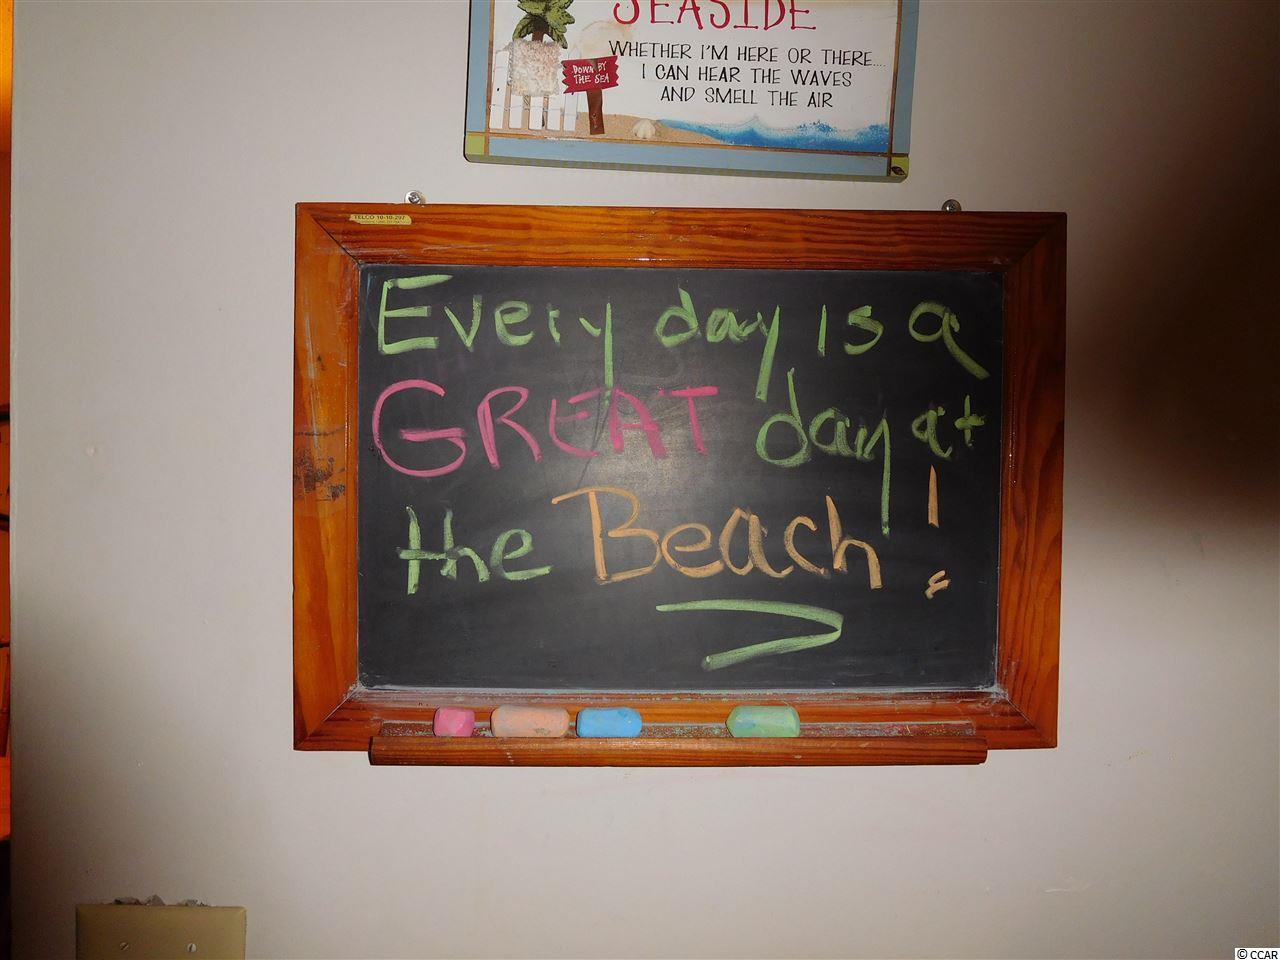 SEASIDE
WHETHER I'M HERE OR THERE....
I CAN HEAR THE WAVES
AND SMELL THE AIR
DOWN BY
THE SEA
TELCO 10-10-297
Every day is a
GREAT day at
the Beach!
© CCAR